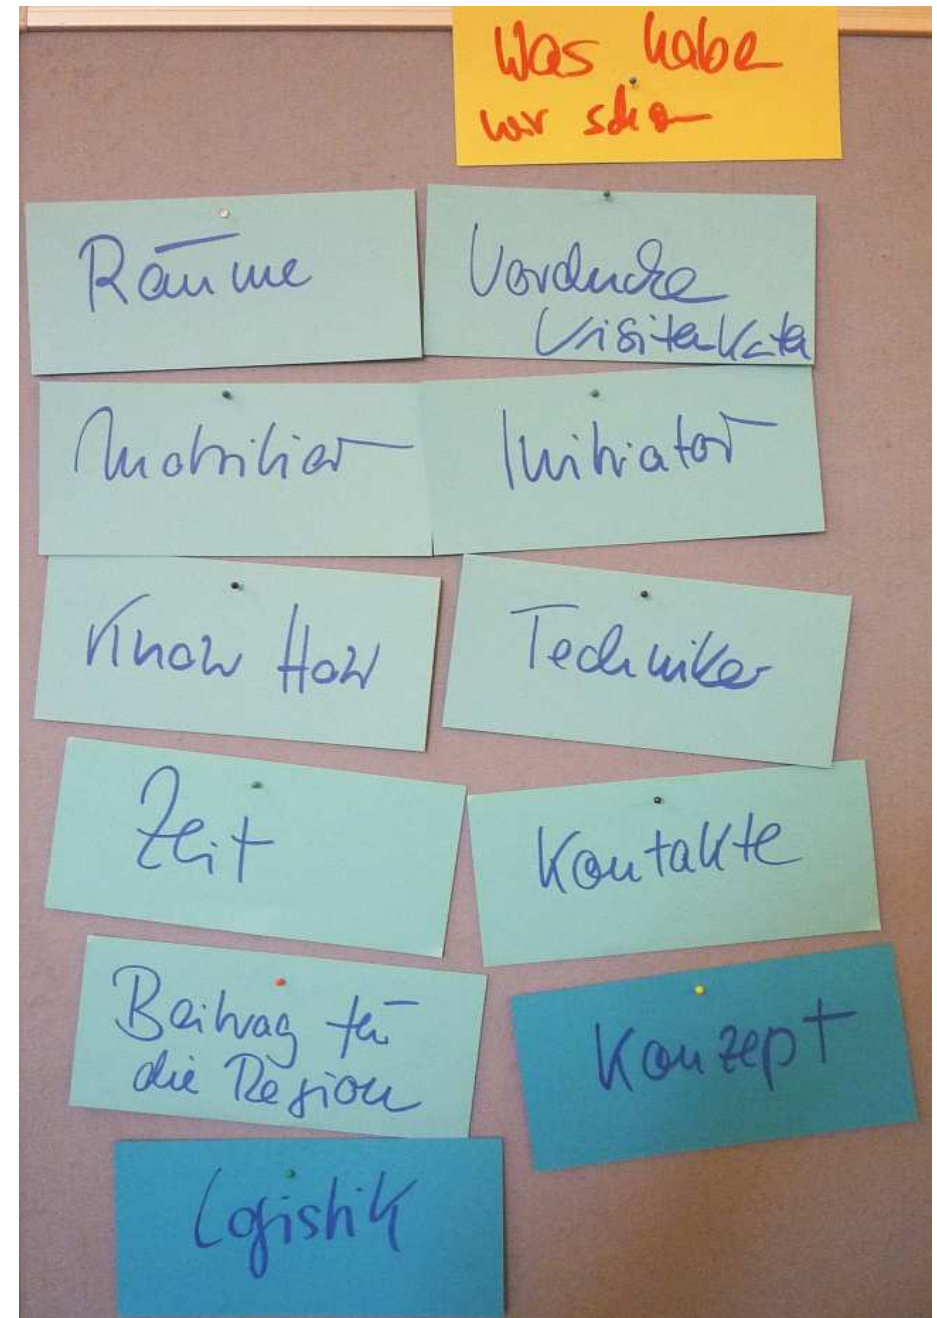 Was habe
wir schon
Räume
Vordrucke
Visitenkarten
Mobiliar
Initiator
Know How
Techniker
Zeit
Kontakte
Beitrag für
die Region
Konzept
Logistik